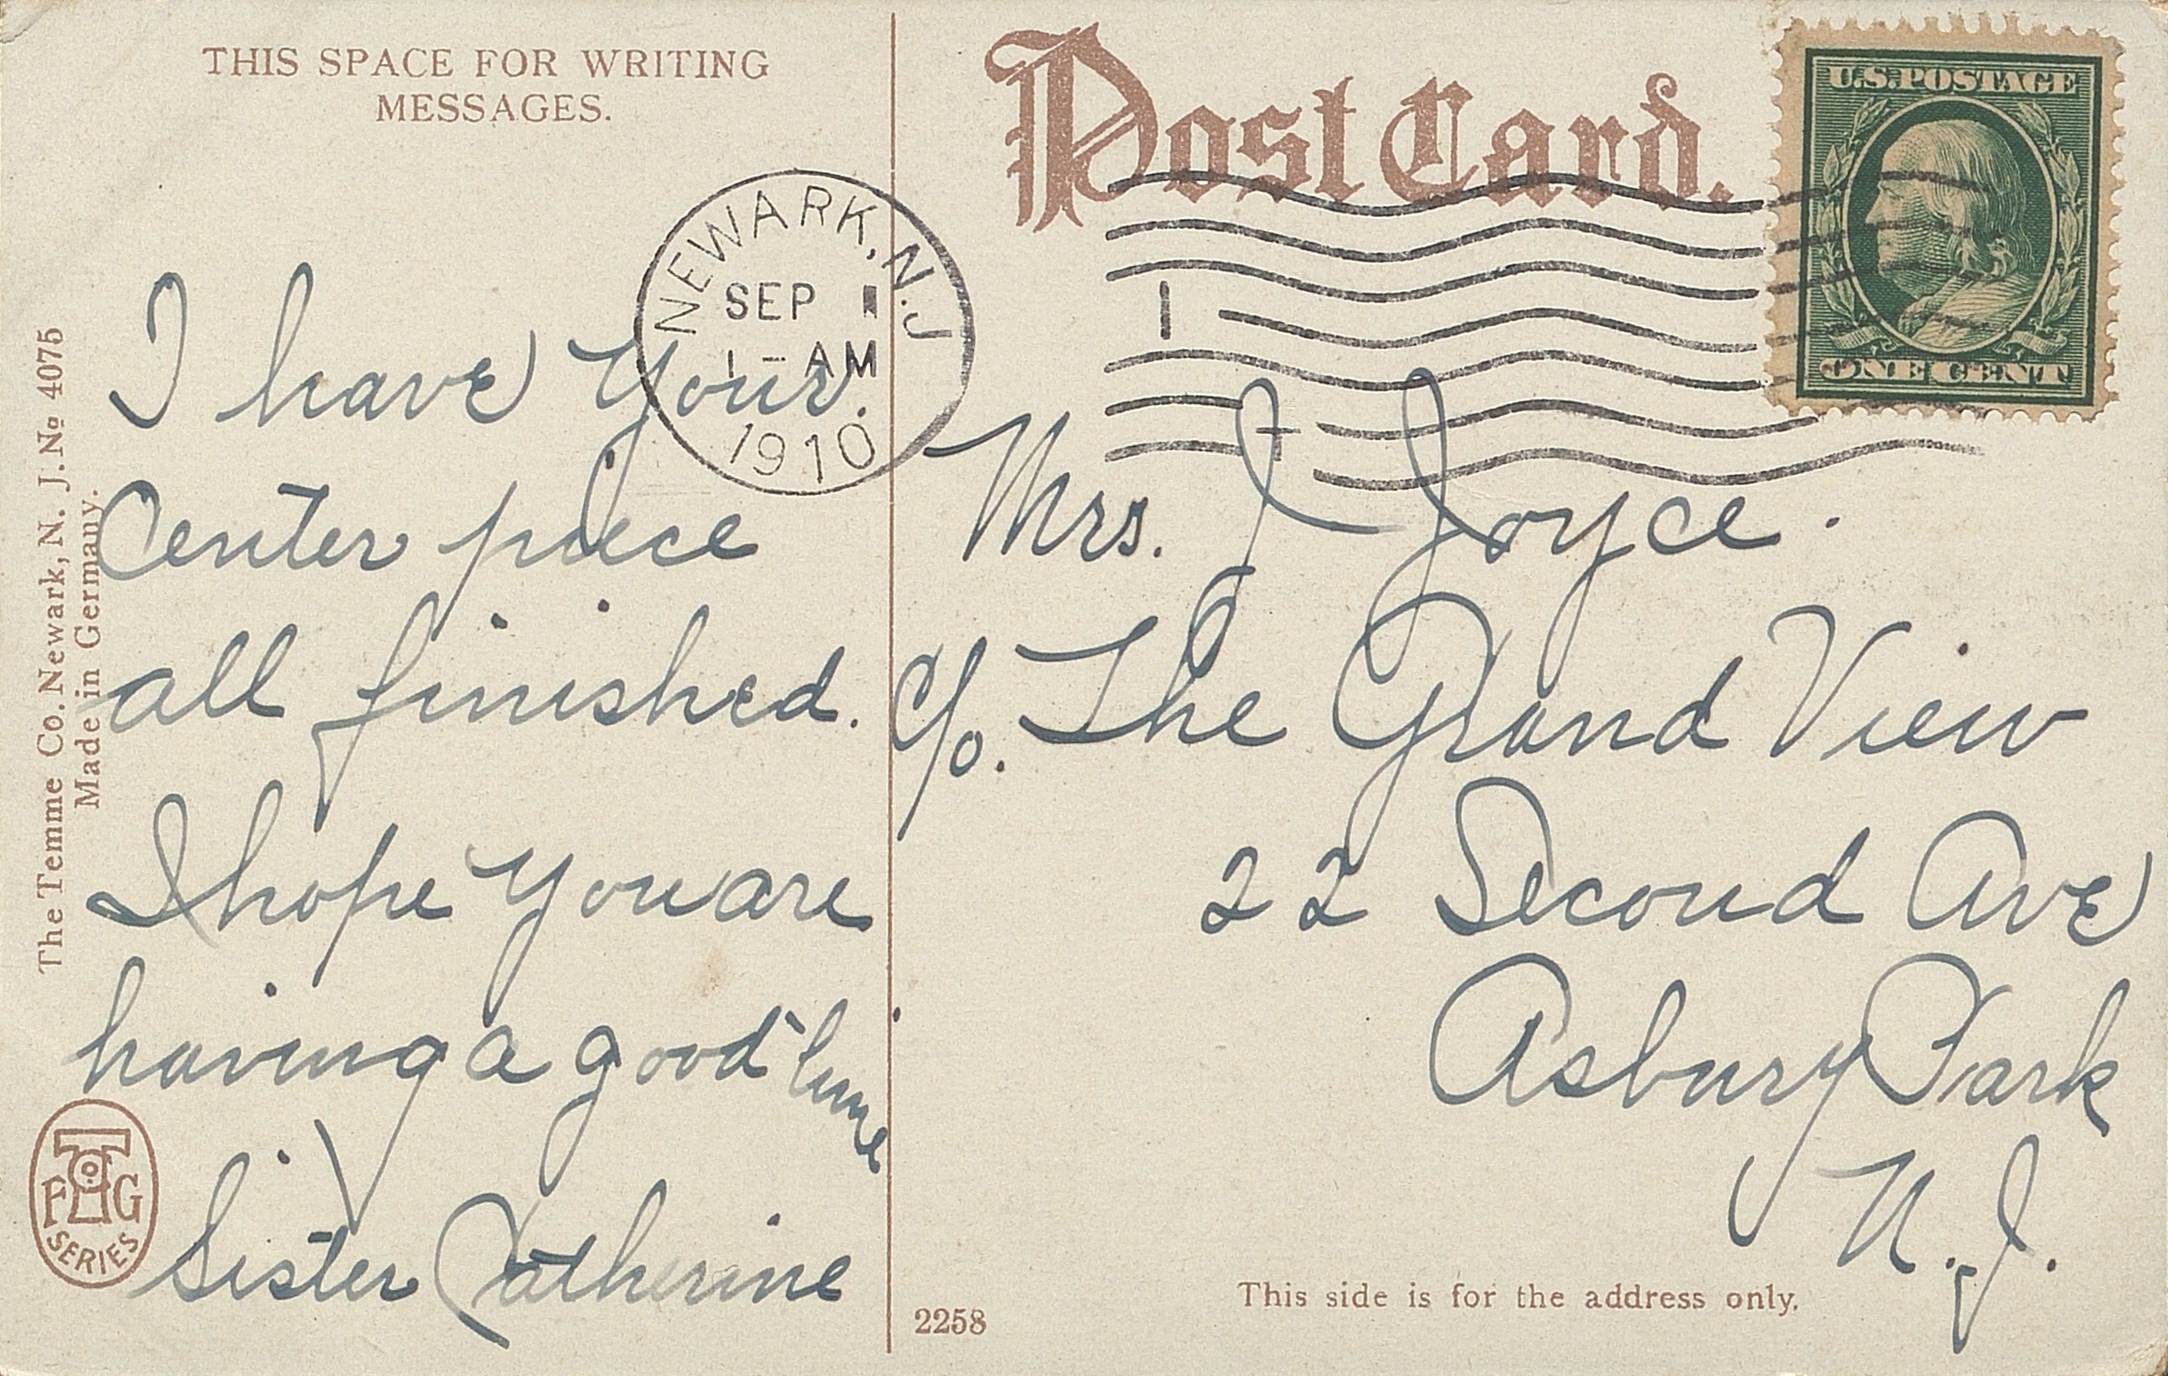 THIS SPACE FOR WRITING
MESSAGES.
Post Card.
U.S. POSTAGE
ONE CENT
NEWARK, N.J.
SEP 1
1 - AM
1910
1
I have your
Center piece
all finished.
I hope you are
having a good time
Sister Catherine
Mrs. J Joyce.
c/o. The Grand View
22 Second Ave
Asbury Park
N.J.
The Temme Co. Newark, N. J. No 4075
Made in Germany.
F T Co G
SERIES
2258
This side is for the address only.